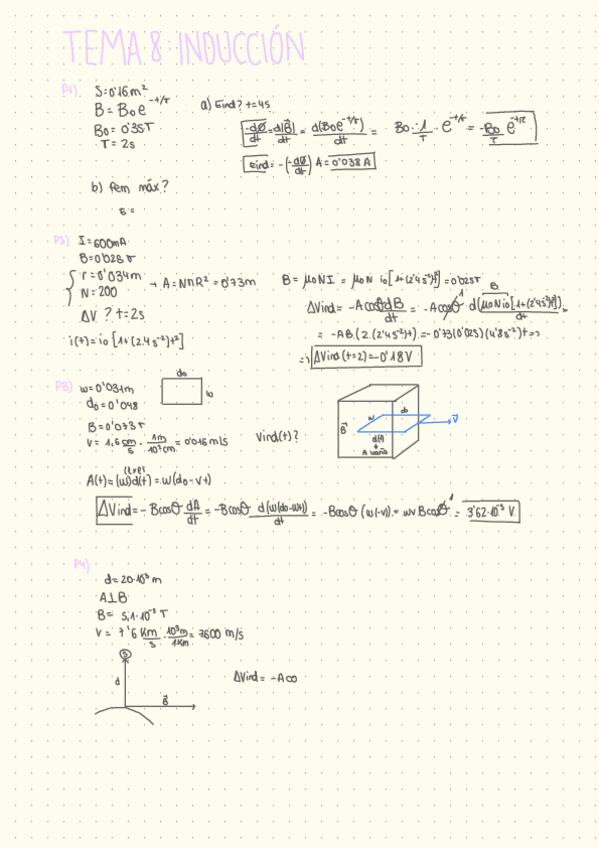 TEMA 8: INDUCCIÓN
P1)
S=0'16m²
B = B₀e^-t/τ
B₀ = 0'35T
T = 2s
a) Eind? t=4s
-dØ/dt = d|B|/dt = d(B₀e^-t/τ)/dt = B₀ · -1/τ · e^-t/τ = -B₀/τ e^-t/τ
Eind = -(-dØ/dt) A = 0'038 A
b) fem máx?
ε =
P2)
I = 600mA
B = 0'028 T
r = 0'034m
N = 200
→ A = NπR² = 0'73m
ΔV ? t=2s
i(t) = i₀ [1+(2.4 s⁻²)t²]
B = μ₀NI = μ₀N i₀[1+(2'4s⁻²)t²] = 0'025T
ΔVind = -A cosθ dB/dt = -A cosθ d(μ₀N i₀[1+(2'4s⁻²)t²])/dt =
= -AB (2(2'4s⁻²)t) = -0'73(0'025)(4'8s⁻²)t =>
=> ΔVind (t=2) = -0'18V
P3)
w = 0'031m
d₀ = 0'048
B = 0'073 T
v = 1,6 cm/s · 1m/10²cm = 0'016 m/s
d₀
w
Vind(t)?
B
w
d₀
d(t)
A varía
V
A(t) = (w)d(t) = w(d₀-vt)
ΔVind = -Bcosθ dA/dt = -Bcosθ d(w(d₀-vt))/dt = -Bcosθ (w(-v)) = wvBcosθ = 3'62·10⁻⁵ V
P4)
d = 20·10³ m
A⊥B
B = 5,1·10⁻⁵ T
v = 7'6 Km/s · 10³m/1Km = 7600 m/s
S
d
B
ΔVind = -A co